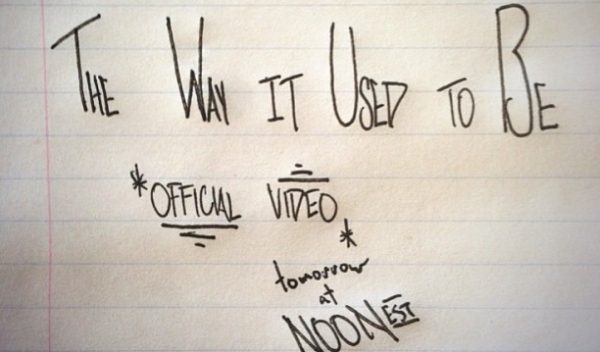 The Way it Used to Be
*OFFICIAL VIDEO*
tomorrow
at
NOON EST